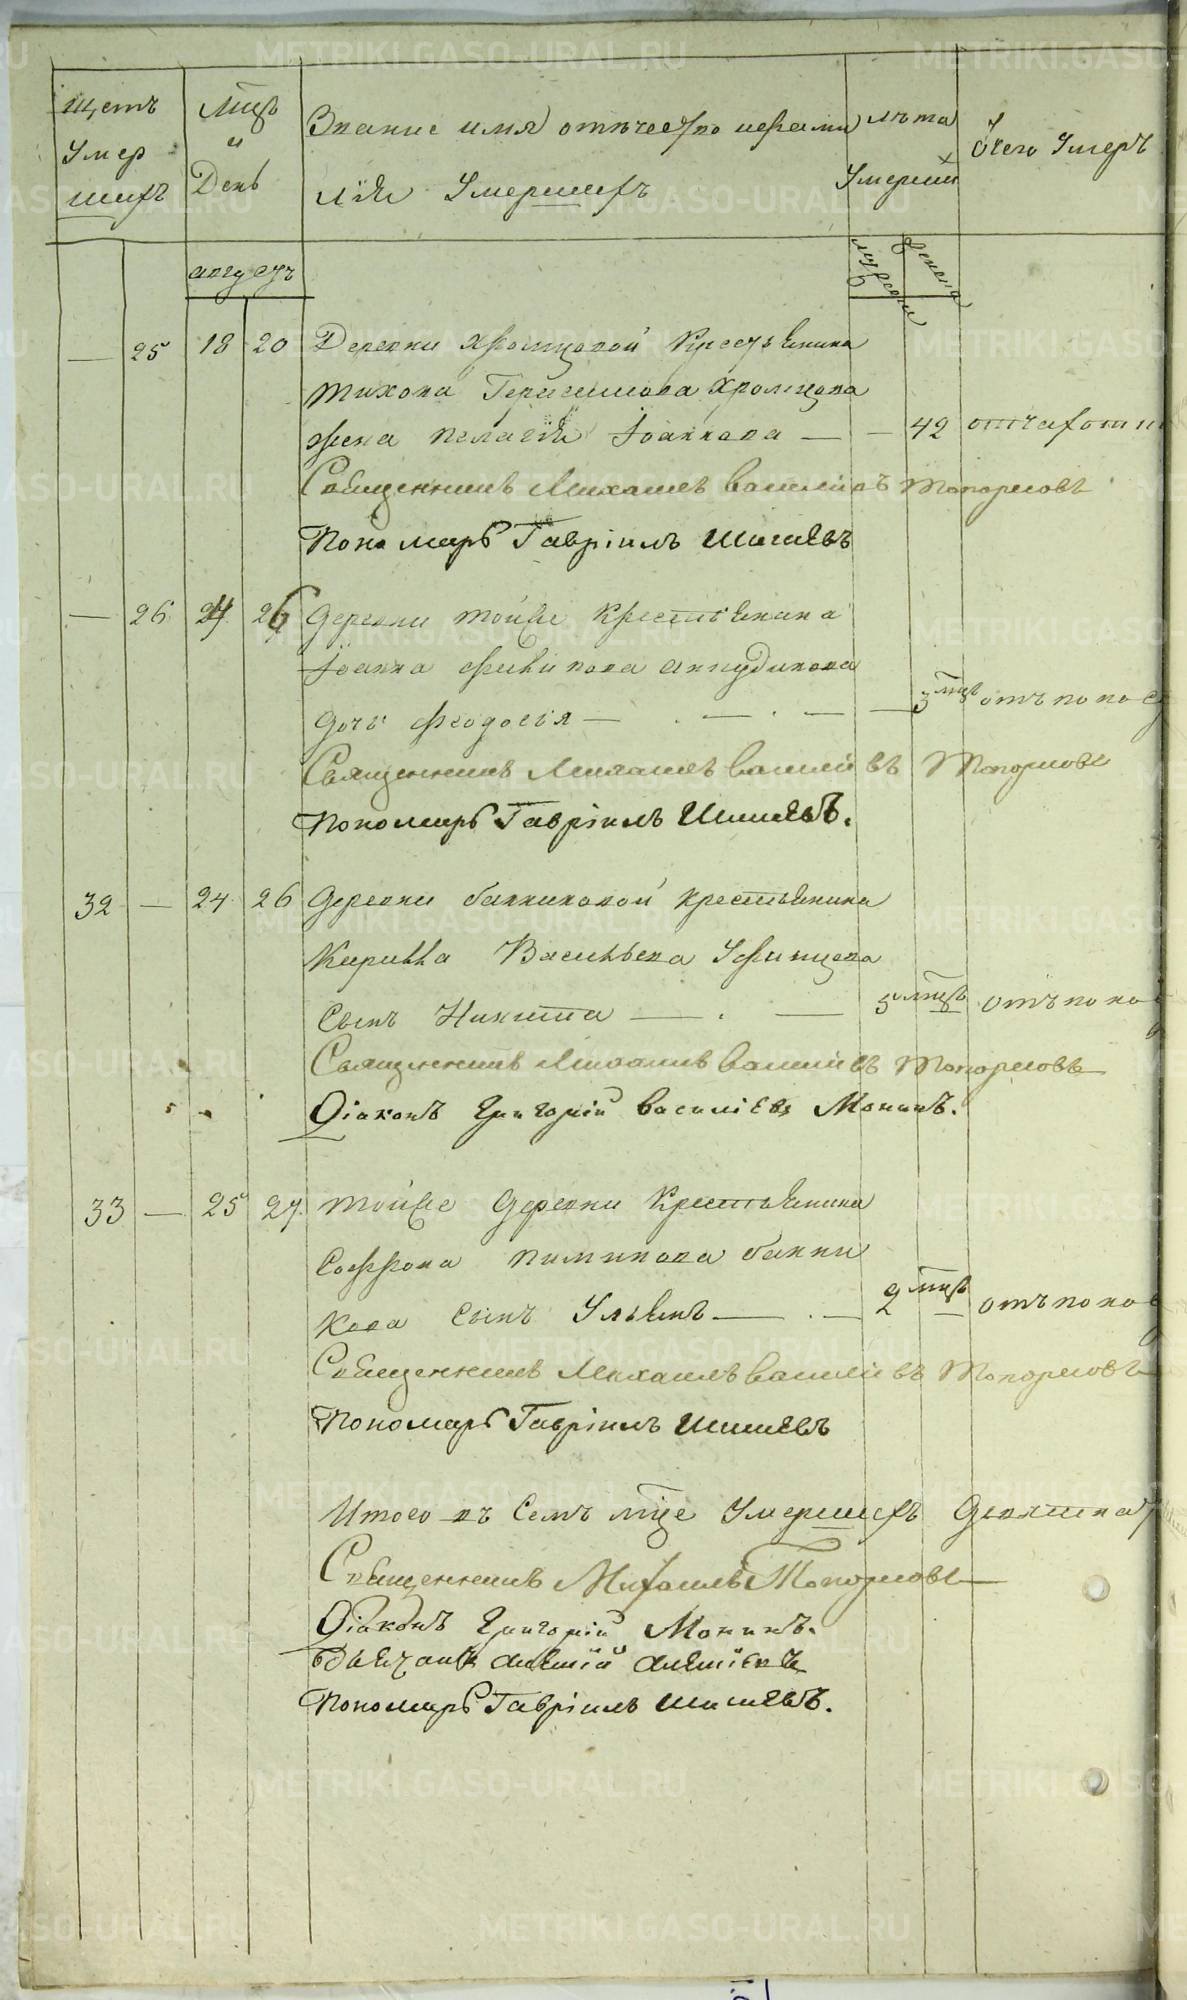 щетъ Умер шихъ
мцъ и День
Звание имя отечество и фами
лїи Умершихъ
лѣта Умерши х
ѿчего Умеръ
август
мужеска
женска
— 25 18 20 Деревни Хромцовой Крестьянина
Тихона Герасимова Хромцова
жена Пелагїя Їоаннова — — 42 отчахотки
Священникъ Михаилъ Васильевъ Топорковъ
Пономарь Гаврїилъ Шишевъ
— 26 24 26 деревни тойже Крестьянина
Їоанна Филипова Анкудинова
дочь Феодосья — — — 3 мцъ отъ поно
Священникъ Михаилъ Васильевъ Топорковъ
Пономарь Гаврїилъ Шишевъ.
32 — 24 26 деревни банниковой крестьянина
Кирилла Васильева Уфинцова
Сынъ Никита — — 5 мцъ отъ поно
Священникъ Михаилъ Васильевъ Топорковъ
Дїаконъ Григорїй Василїевъ Монинъ.
33 — 25 27 тойже деревни Крестьянина
Софрона Пиминова банни
кова сынъ Ульянъ — — 2 мцъ — отъ поно
Священникъ Михаилъ Васильевъ Топорковъ
Пономарь Гаврїилъ Шишевъ
Итого въ семъ мце Умершихъ девятнат
Священникъ Михаилъ Топорковъ
Дїаконъ Григорїй Монинъ.
Дьячокъ Алексїй Алексїевъ
Пономарь Гаврїилъ Шишевъ.
METRIKI.GASO-URAL.RU